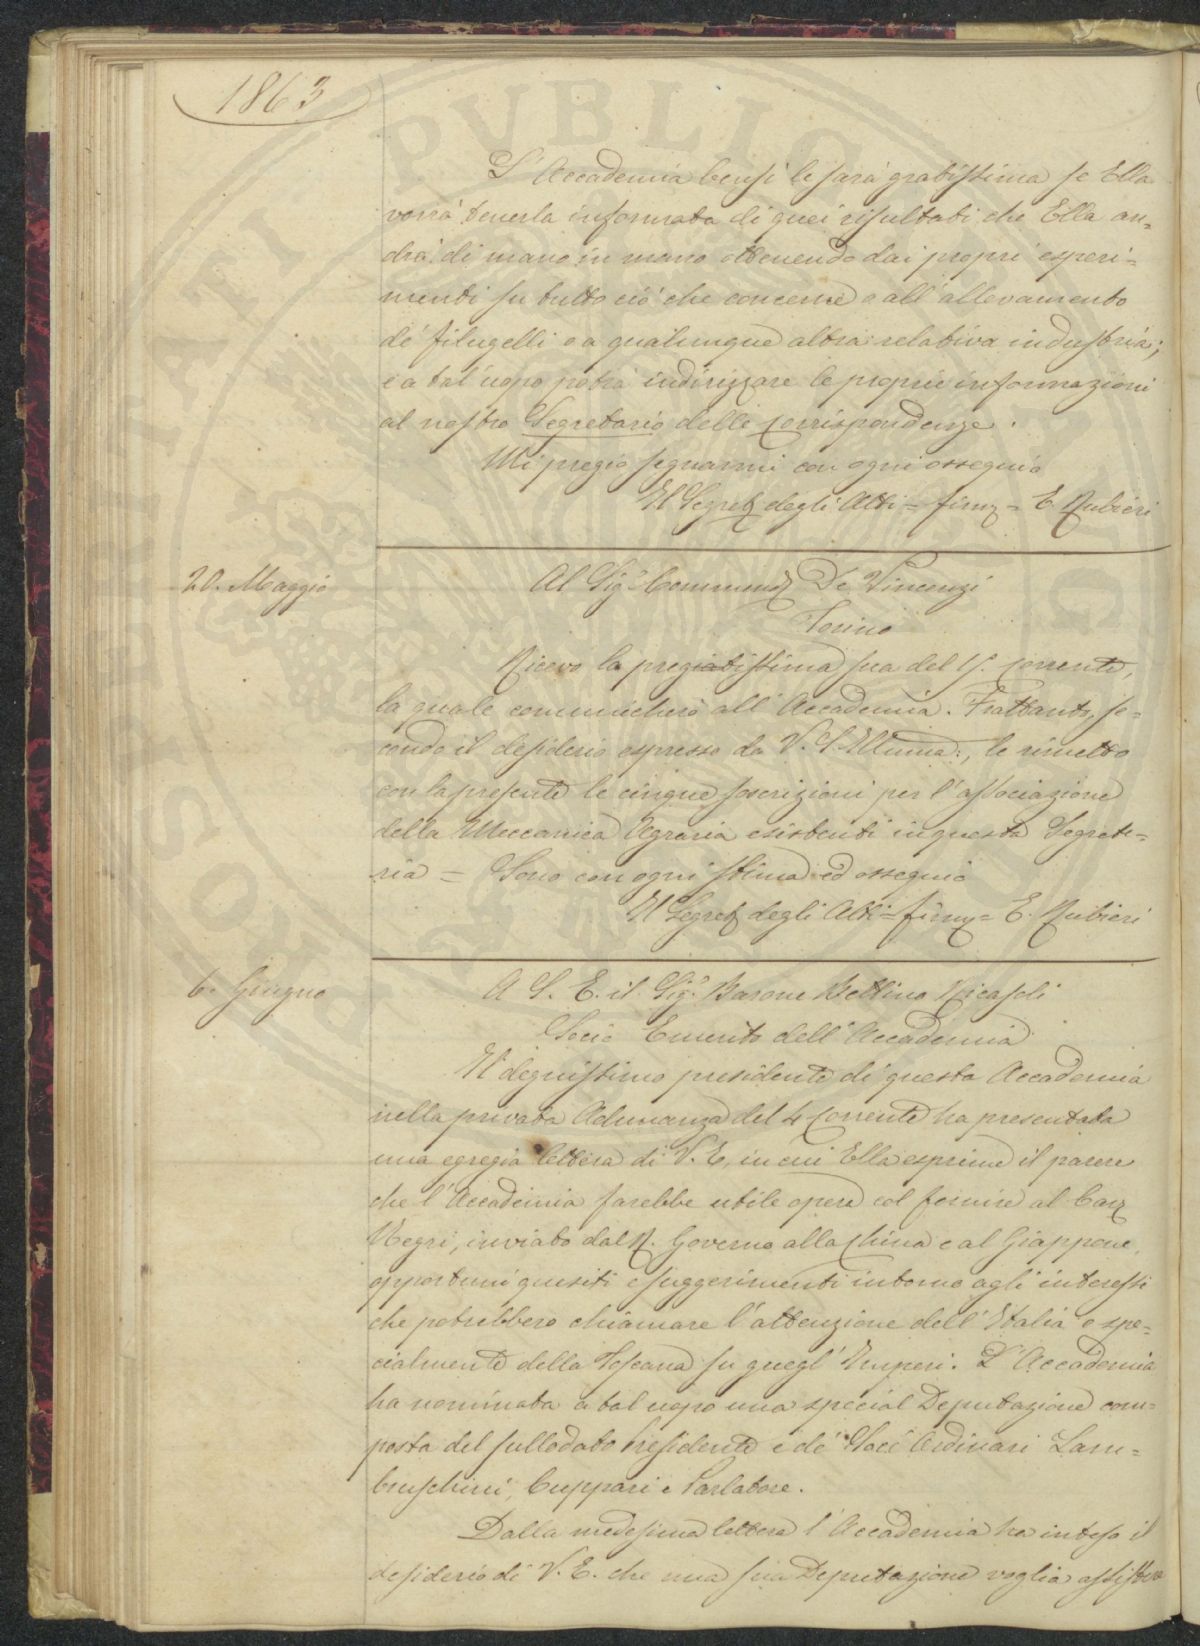 1863
L'Accademia bensì le sarà gratissima se Ella
vorrà tenerla informata di quei risultati che Ella an=
drà di mano in mano ottenendo dai propri esperi=
menti su tutto ciò che concerne o all'allevamento
de' filugelli o a qualunque altra relativa industria;
e a tal uopo potrà indirizzare le proprie informazioni
al nostro Segretario delle Corrispondenze.
Mi pregio segnarmi con ogni ossequio
Il Segret. degli Atti = firm. = E. Rubieri
20. Maggio
Al Sig. Commend. De Vincenzi
Torino
Ricevo la pregiatissima sua del 15. corrente,
la quale comunicherò all'Accademia. Frattanto, se=
condo il desiderio espresso da V. S. Illuma:, le rimetto
con la presente le cinque soscrizioni per l'associazione
della Meccanica Agraria esistenti in questa Segrete=
ria = Sono con ogni stima ed ossequio
Il Segret. degli Atti = firm. = E. Rubieri
6. Giugno
A S. E. il Sig. Barone Bettino Ricasoli
Socio Emerito dell'Accademia
Il degnissimo presidente di questa Accademia
nella privata Adunanza del 4 Corrente ha presentata
una egregia lettera di V. E. in cui Ella esprime il parere
che l'Accademia farebbe utile opera col fornire al Cav.
Negri, inviato dal R. Governo alla China e al Giappone,
opportuni quesiti e suggerimenti intorno agli interessi
che potrebbero chiamare l'attenzione dell'Italia e spe=
cialmente della Toscana su quegl'Imperi. L'Accademia
ha nominata a tal uopo una special Deputazione com=
posta del sullodato Presidente e de' Soci Ordinari Lam=
bruschini, Cuppari e Parlatore.
Dalla medesima lettera l'Accademia ha inteso il
desiderio di V. E. che una sua Deputazione voglia assistere